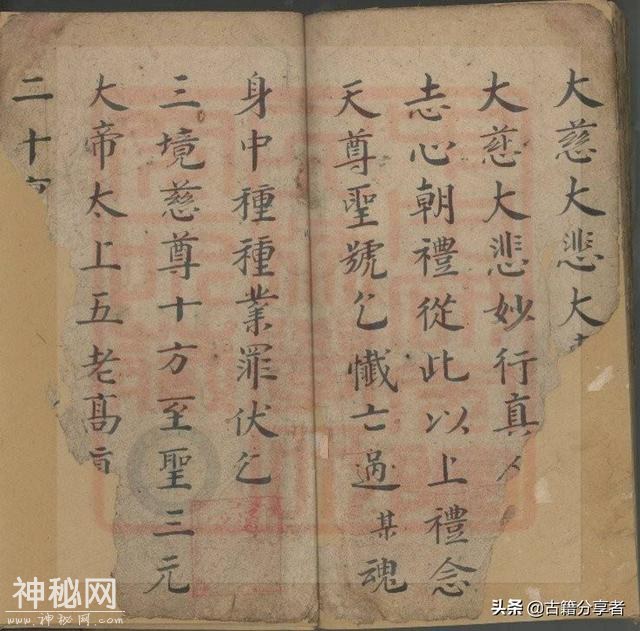 大慈大悲大
大慈大悲妙行真人
志心朝禮從此以上禮念
天尊聖號乞懺亡過某魂
身中種種業罪伏乞
三境慈尊十方至聖三元
大帝太上五老高
二十
神秘网
www.shenmiwang.com
头条 @古籍分享者